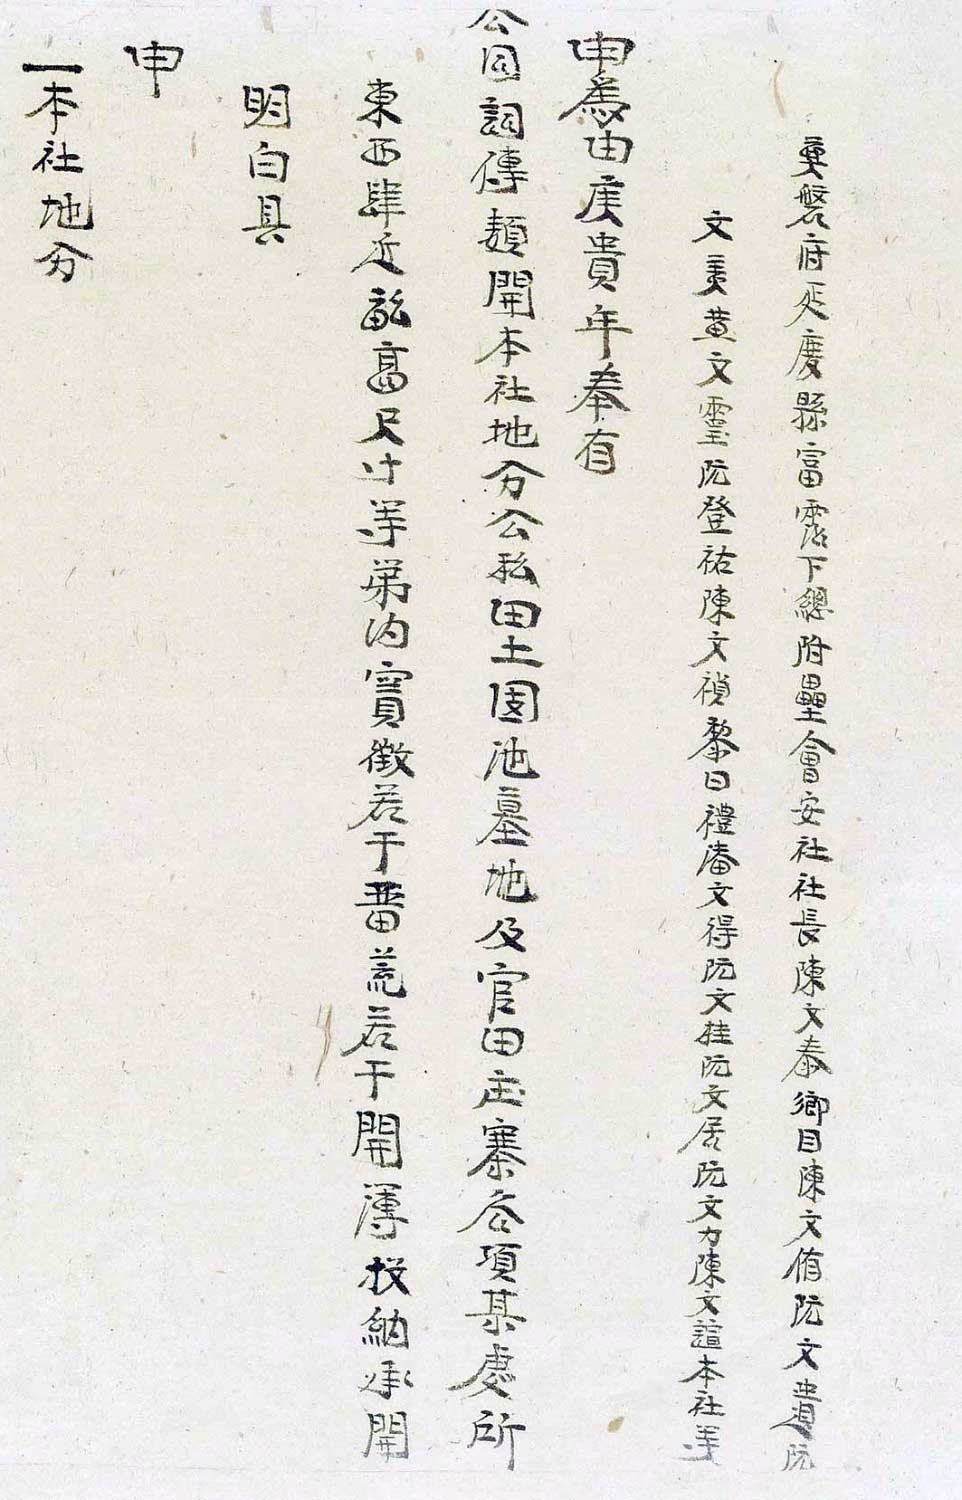 奠磐府延慶縣富霑下總附壘會安社社長陳文泰鄉目陳文侑阮文貴阮
文黄文靈阮登祐陳文禎黎曰禮潘文得阮文桂阮文居阮文力陳文諠本社等
申爲由庚貴年奉有
公同詞傳類開本社地分公私田土園池墓地及官田庄寨各項某處所
東西肆近畝高尺寸等第內實徵若干畨荒若干開簿投納承開
明白具
申
一本社地分